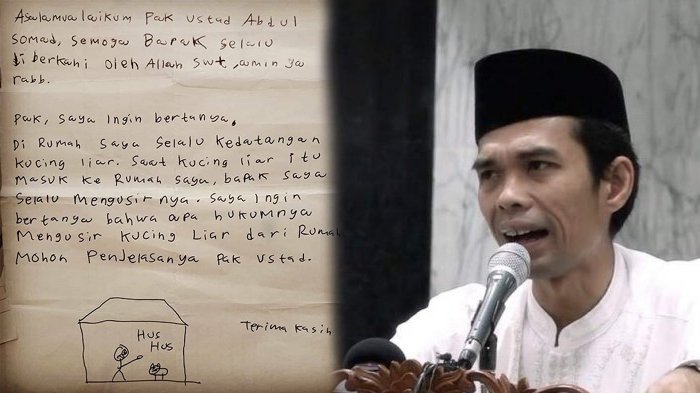 Asalamualaikum Pak ustad Abdul
somad, semoga Bapak selalu
diberkahi oleh Allah swt, amin ya
rabb.
Pak, saya Ingin bertanya,
Di Rumah saya selalu Kedatangan
Kucing liar. Saat Kucing liar itu
Masuk Ke Rumah saya, bapak saya
selalu Mengusirnya. saya Ingin
bertanya bahwa apa hukumnya
Mengusir Kucing Liar dari Rumah
Mohon Penjelasanya Pak ustad.
Terima Kasih
HUS
HUS